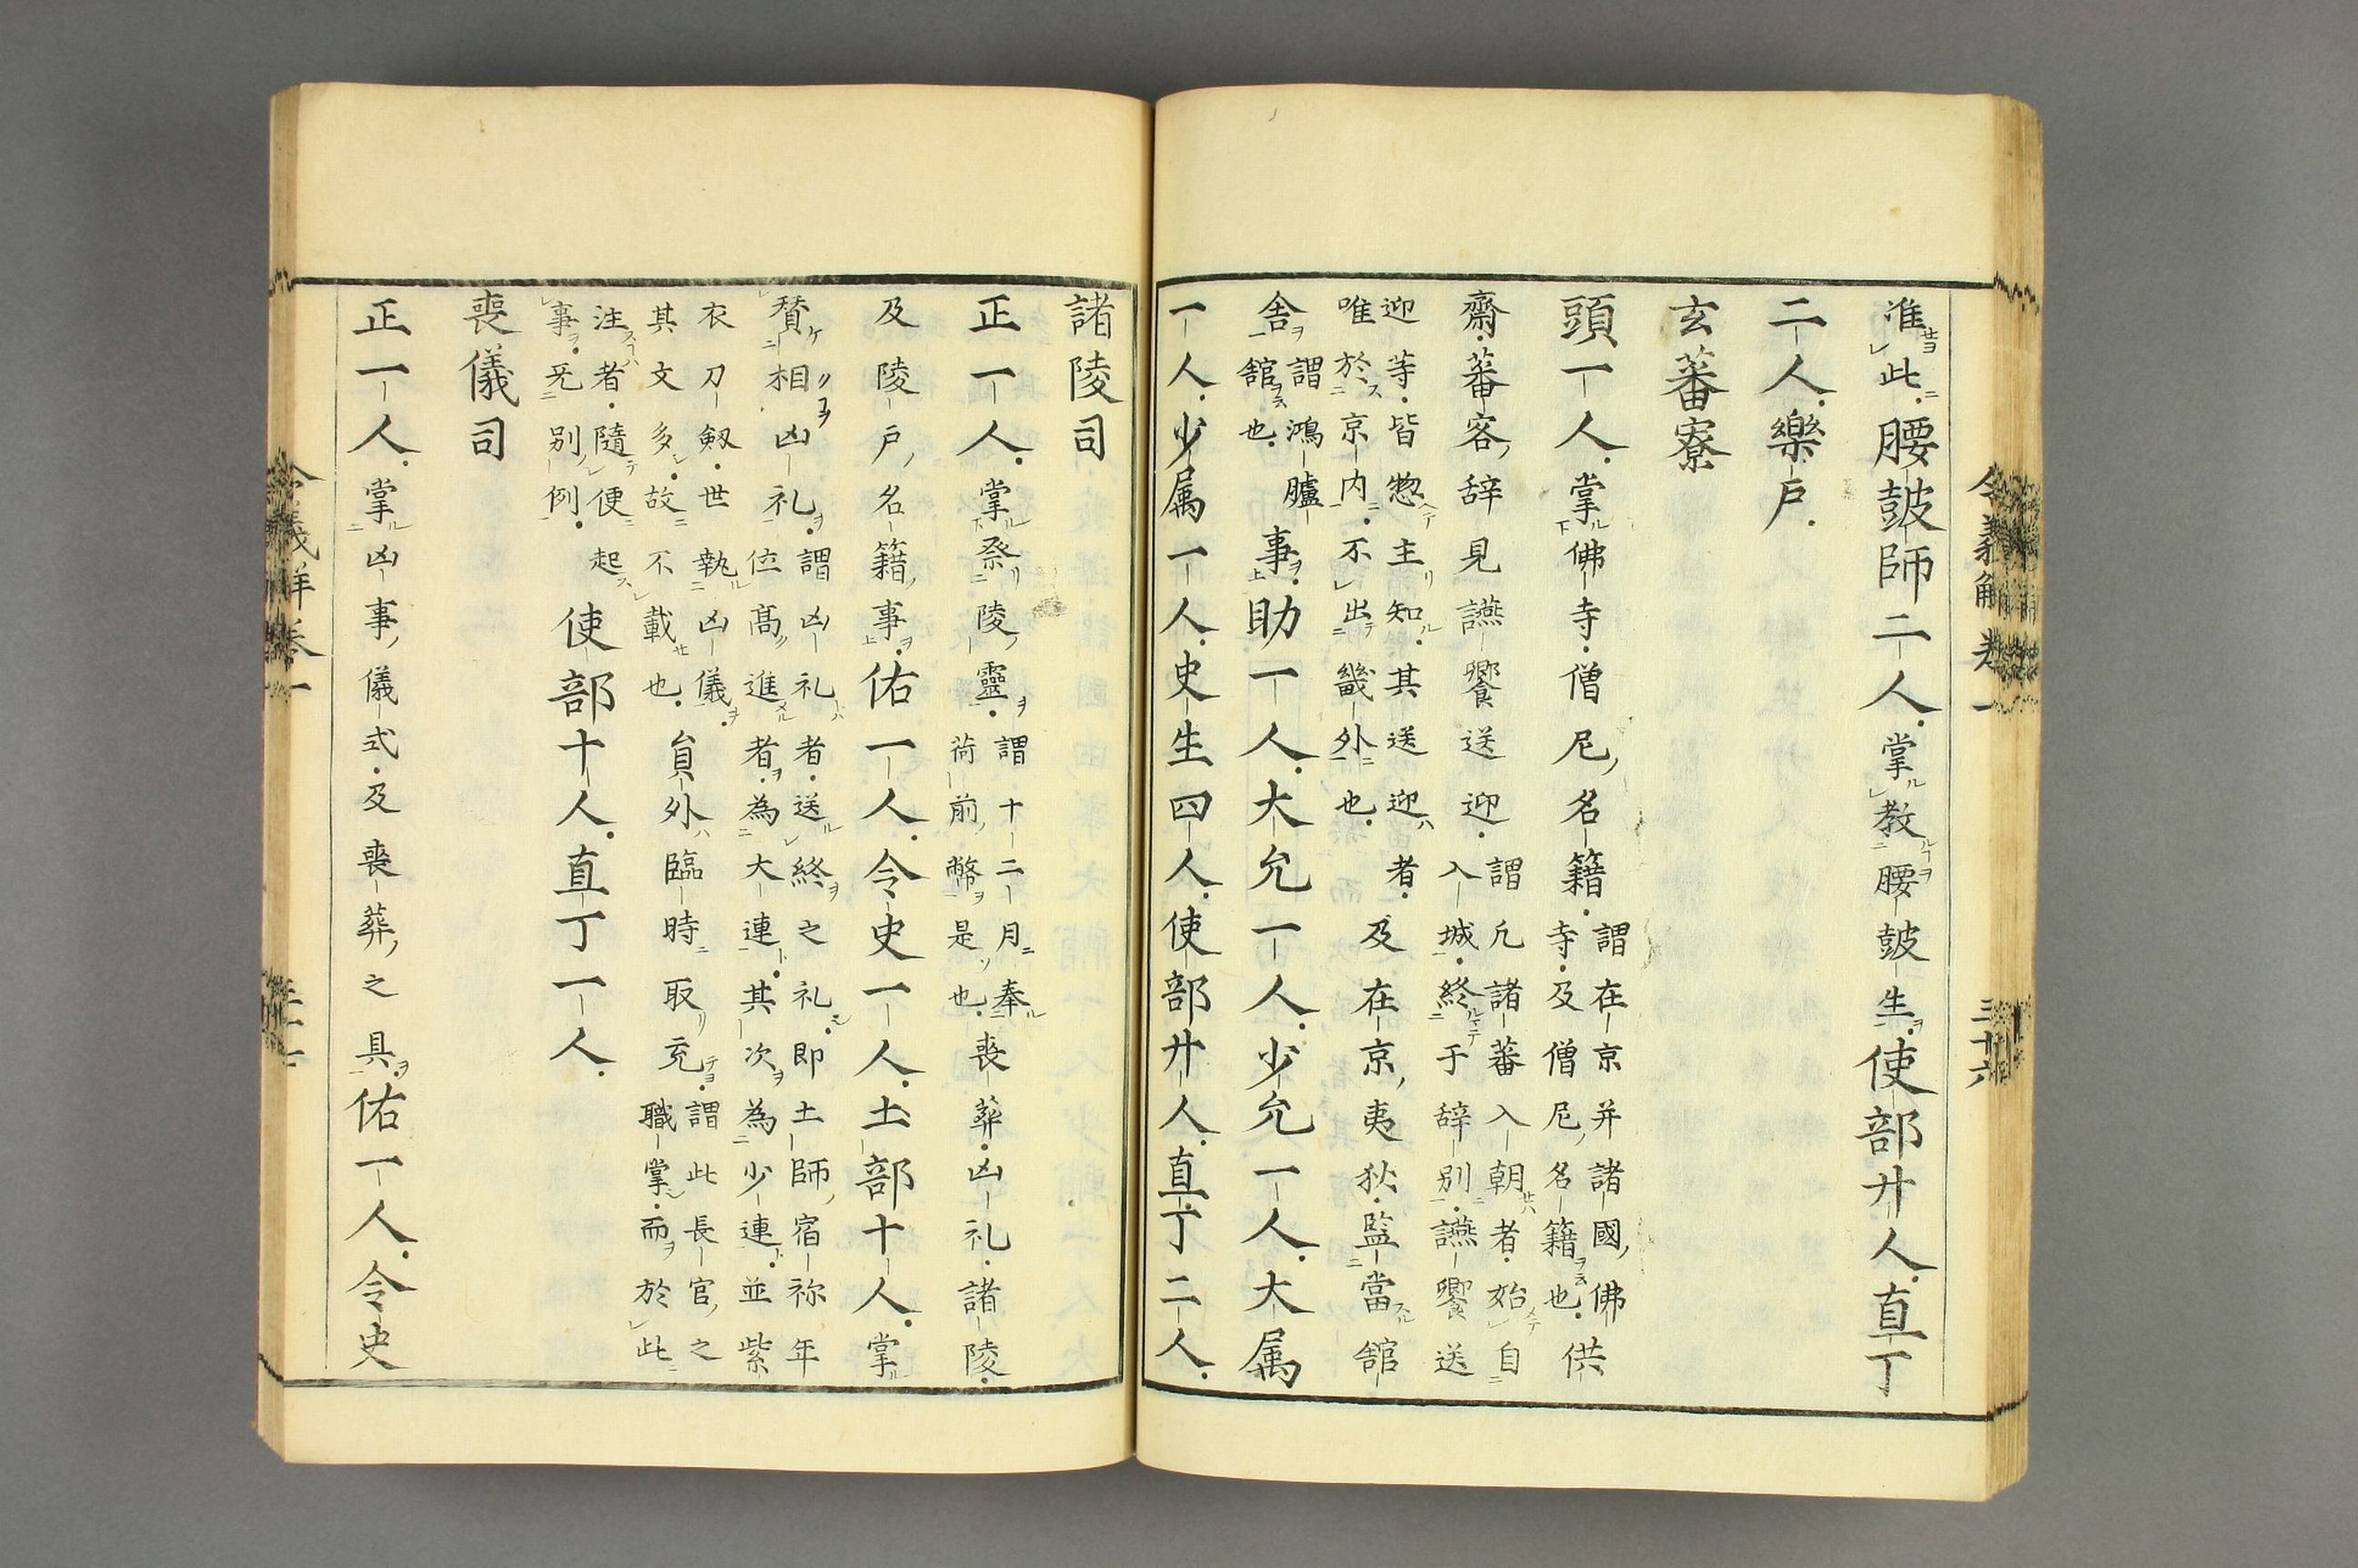 准此腰皷師二人掌教腰皷生使部廿人直丁
二人樂戸
玄蕃寮
頭一人掌佛寺僧尼名籍謂在京并諸國佛寺及僧尼名籍也供
齋蕃客辞見讌饗送迎謂凡諸蕃入朝者始自入城終于辞別讌饗送
迎等皆惣主知其送迎者唯於京内不出畿外也及在京夷狄監當舘
舎謂鴻臚舘也事助一人大允一人少允一人大属
一人少属一人史生四人使部廿人直丁二人
令義解巻一 三十六
諸陵司
正一人掌祭陵靈謂十二月奉荷前幣是也喪葬凶礼諸陵
及陵戸名籍事佑一人令史一人土部十人掌
賛相凶礼謂凶礼者送終之礼即土師宿祢年位髙進者為大連其次為少連並紫
衣刀剱世執凶儀其文多故不載也貟外臨時取充謂此長官之職掌而於此
注者隨便起事旡別例使部十人直丁一人
喪儀司
正一人掌凶事儀式及喪葬之具佑一人令史